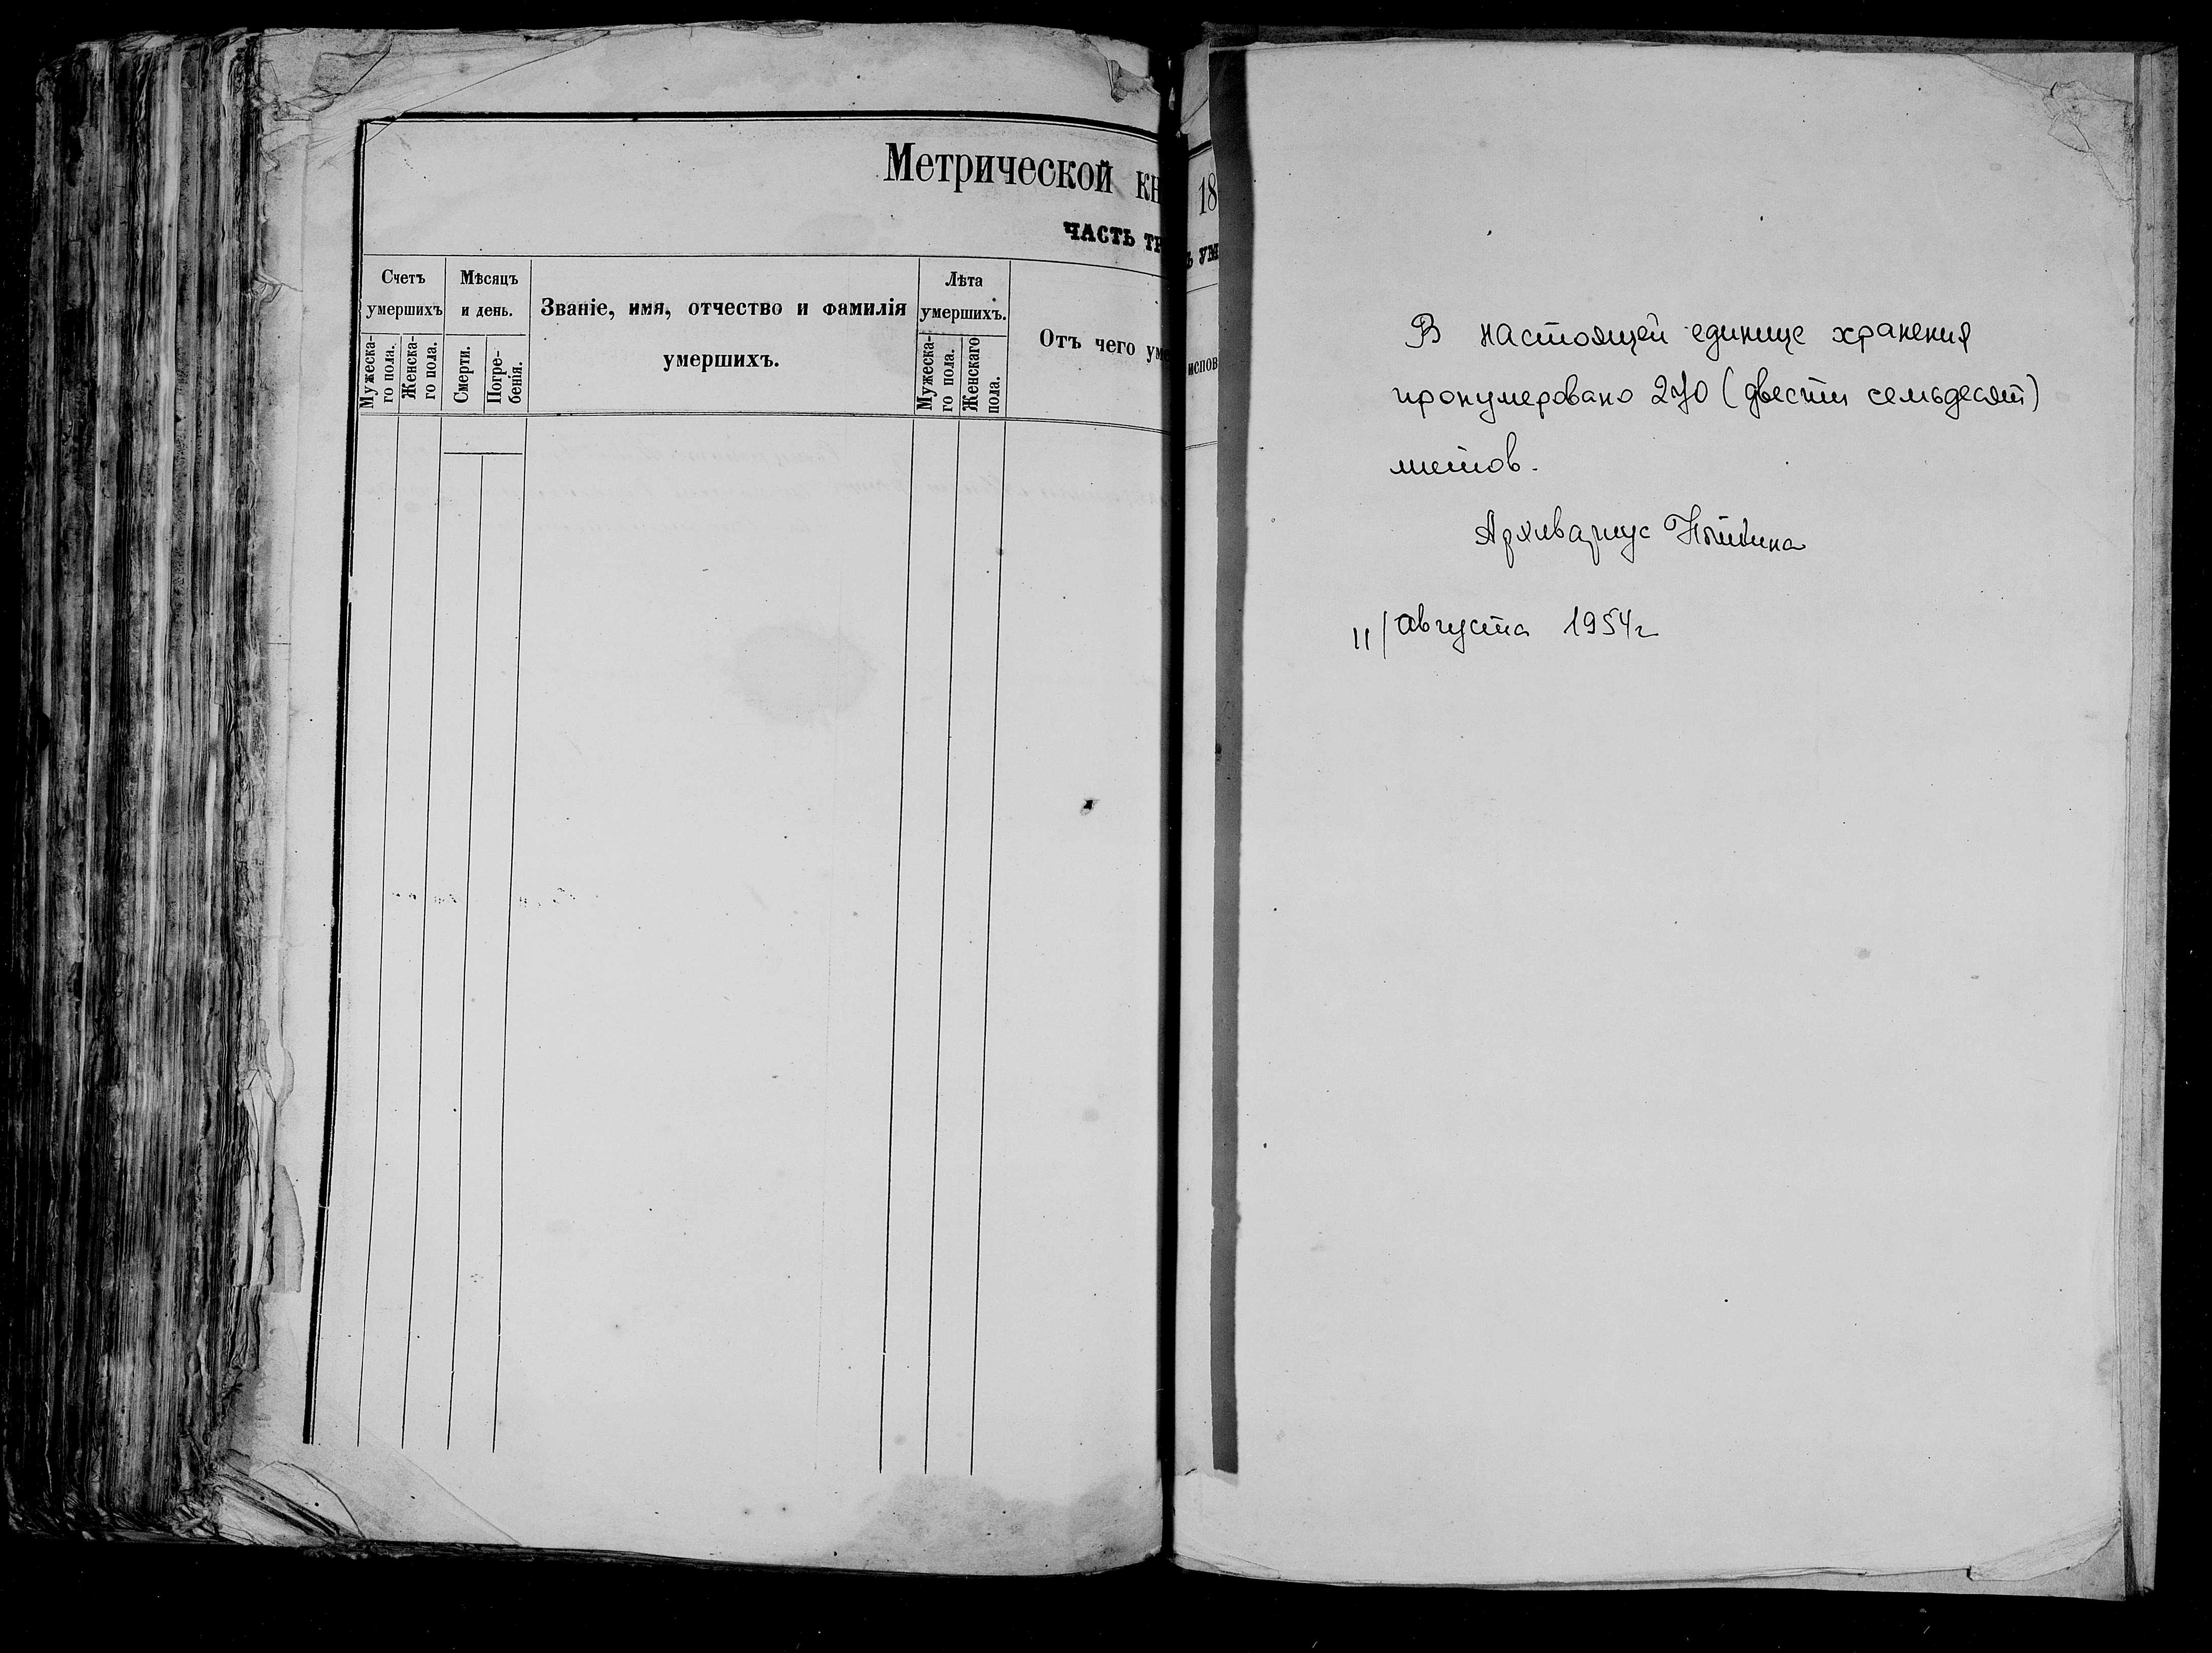 Метрической кн
ЧАСТЬ ТР
Счетъ умершихъ
Мужеска-
го пола.
Женска-
го пола.
Мѣсяцъ
и день.
Смерти.
Погре-
бенія.
Званіе, имя, отчество и фамилія
умершихъ.
Лѣта
умершихъ.
Мужеска-
го пола.
Женскаго
пола.
Отъ чего уме
18
ъ ум
испов
В настоящей единице хранения
пронумеровано 270 (двести семьдесят)
листов.
Архивариус
11/августа 1954г